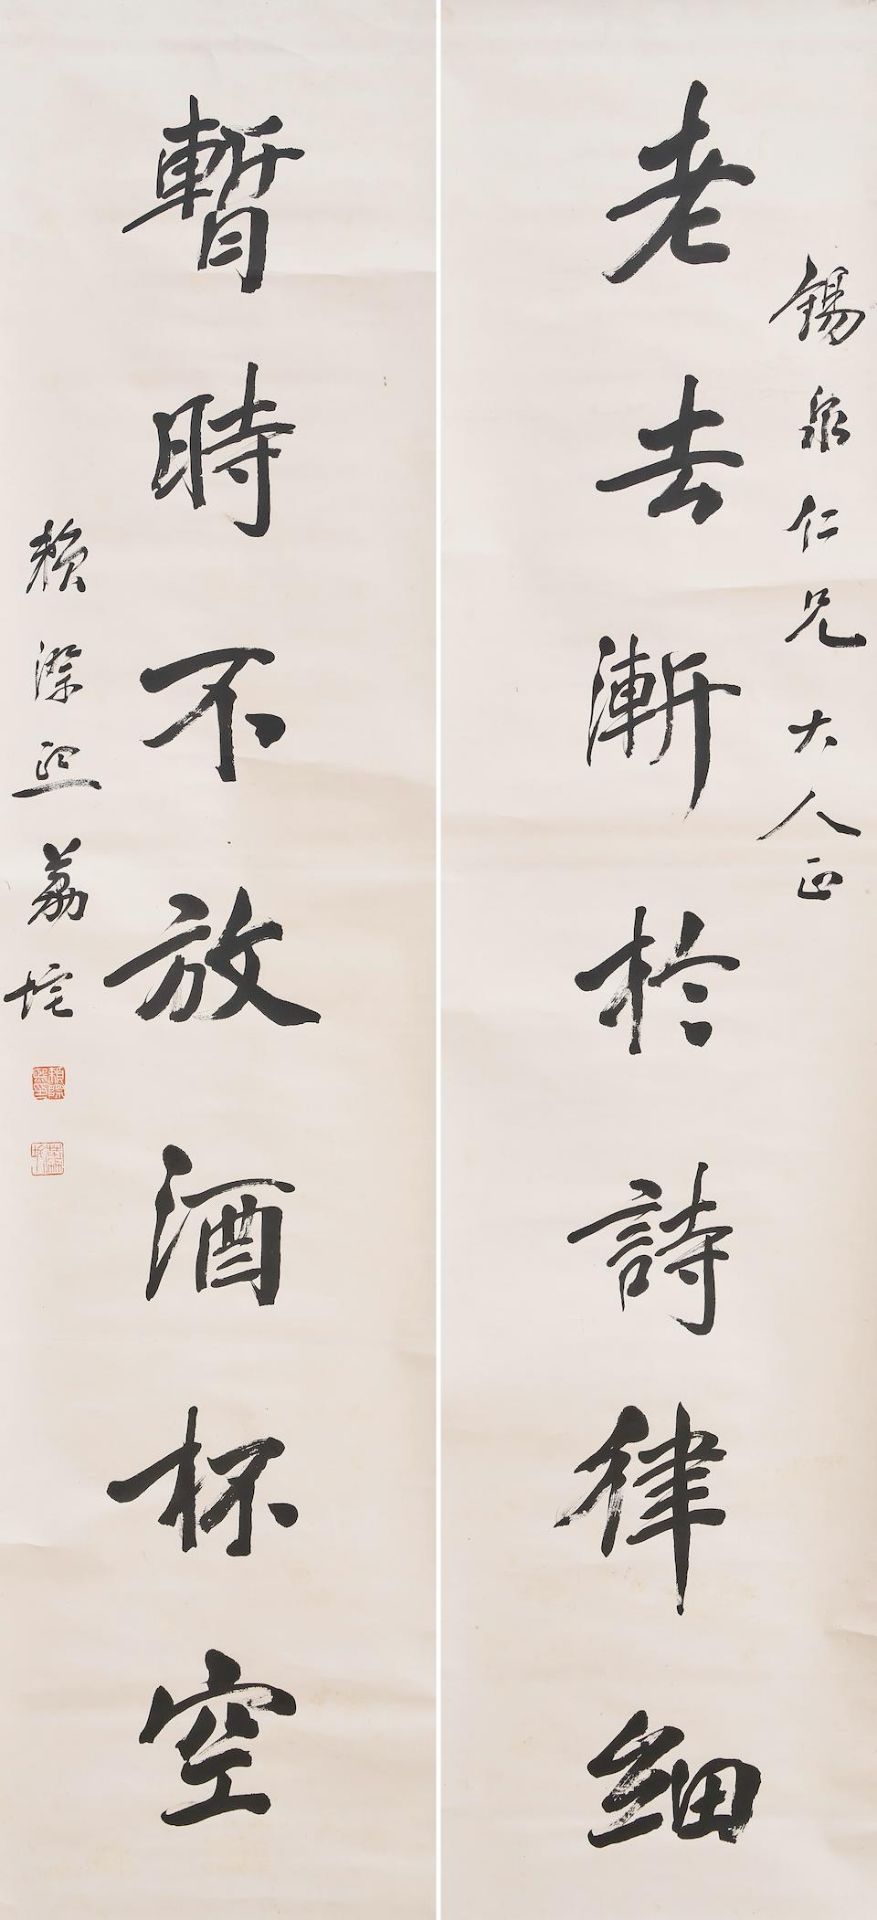 錫泉仁兄大人正
老去漸於詩律細
暫時不放酒杯空
賴際熙荔垞